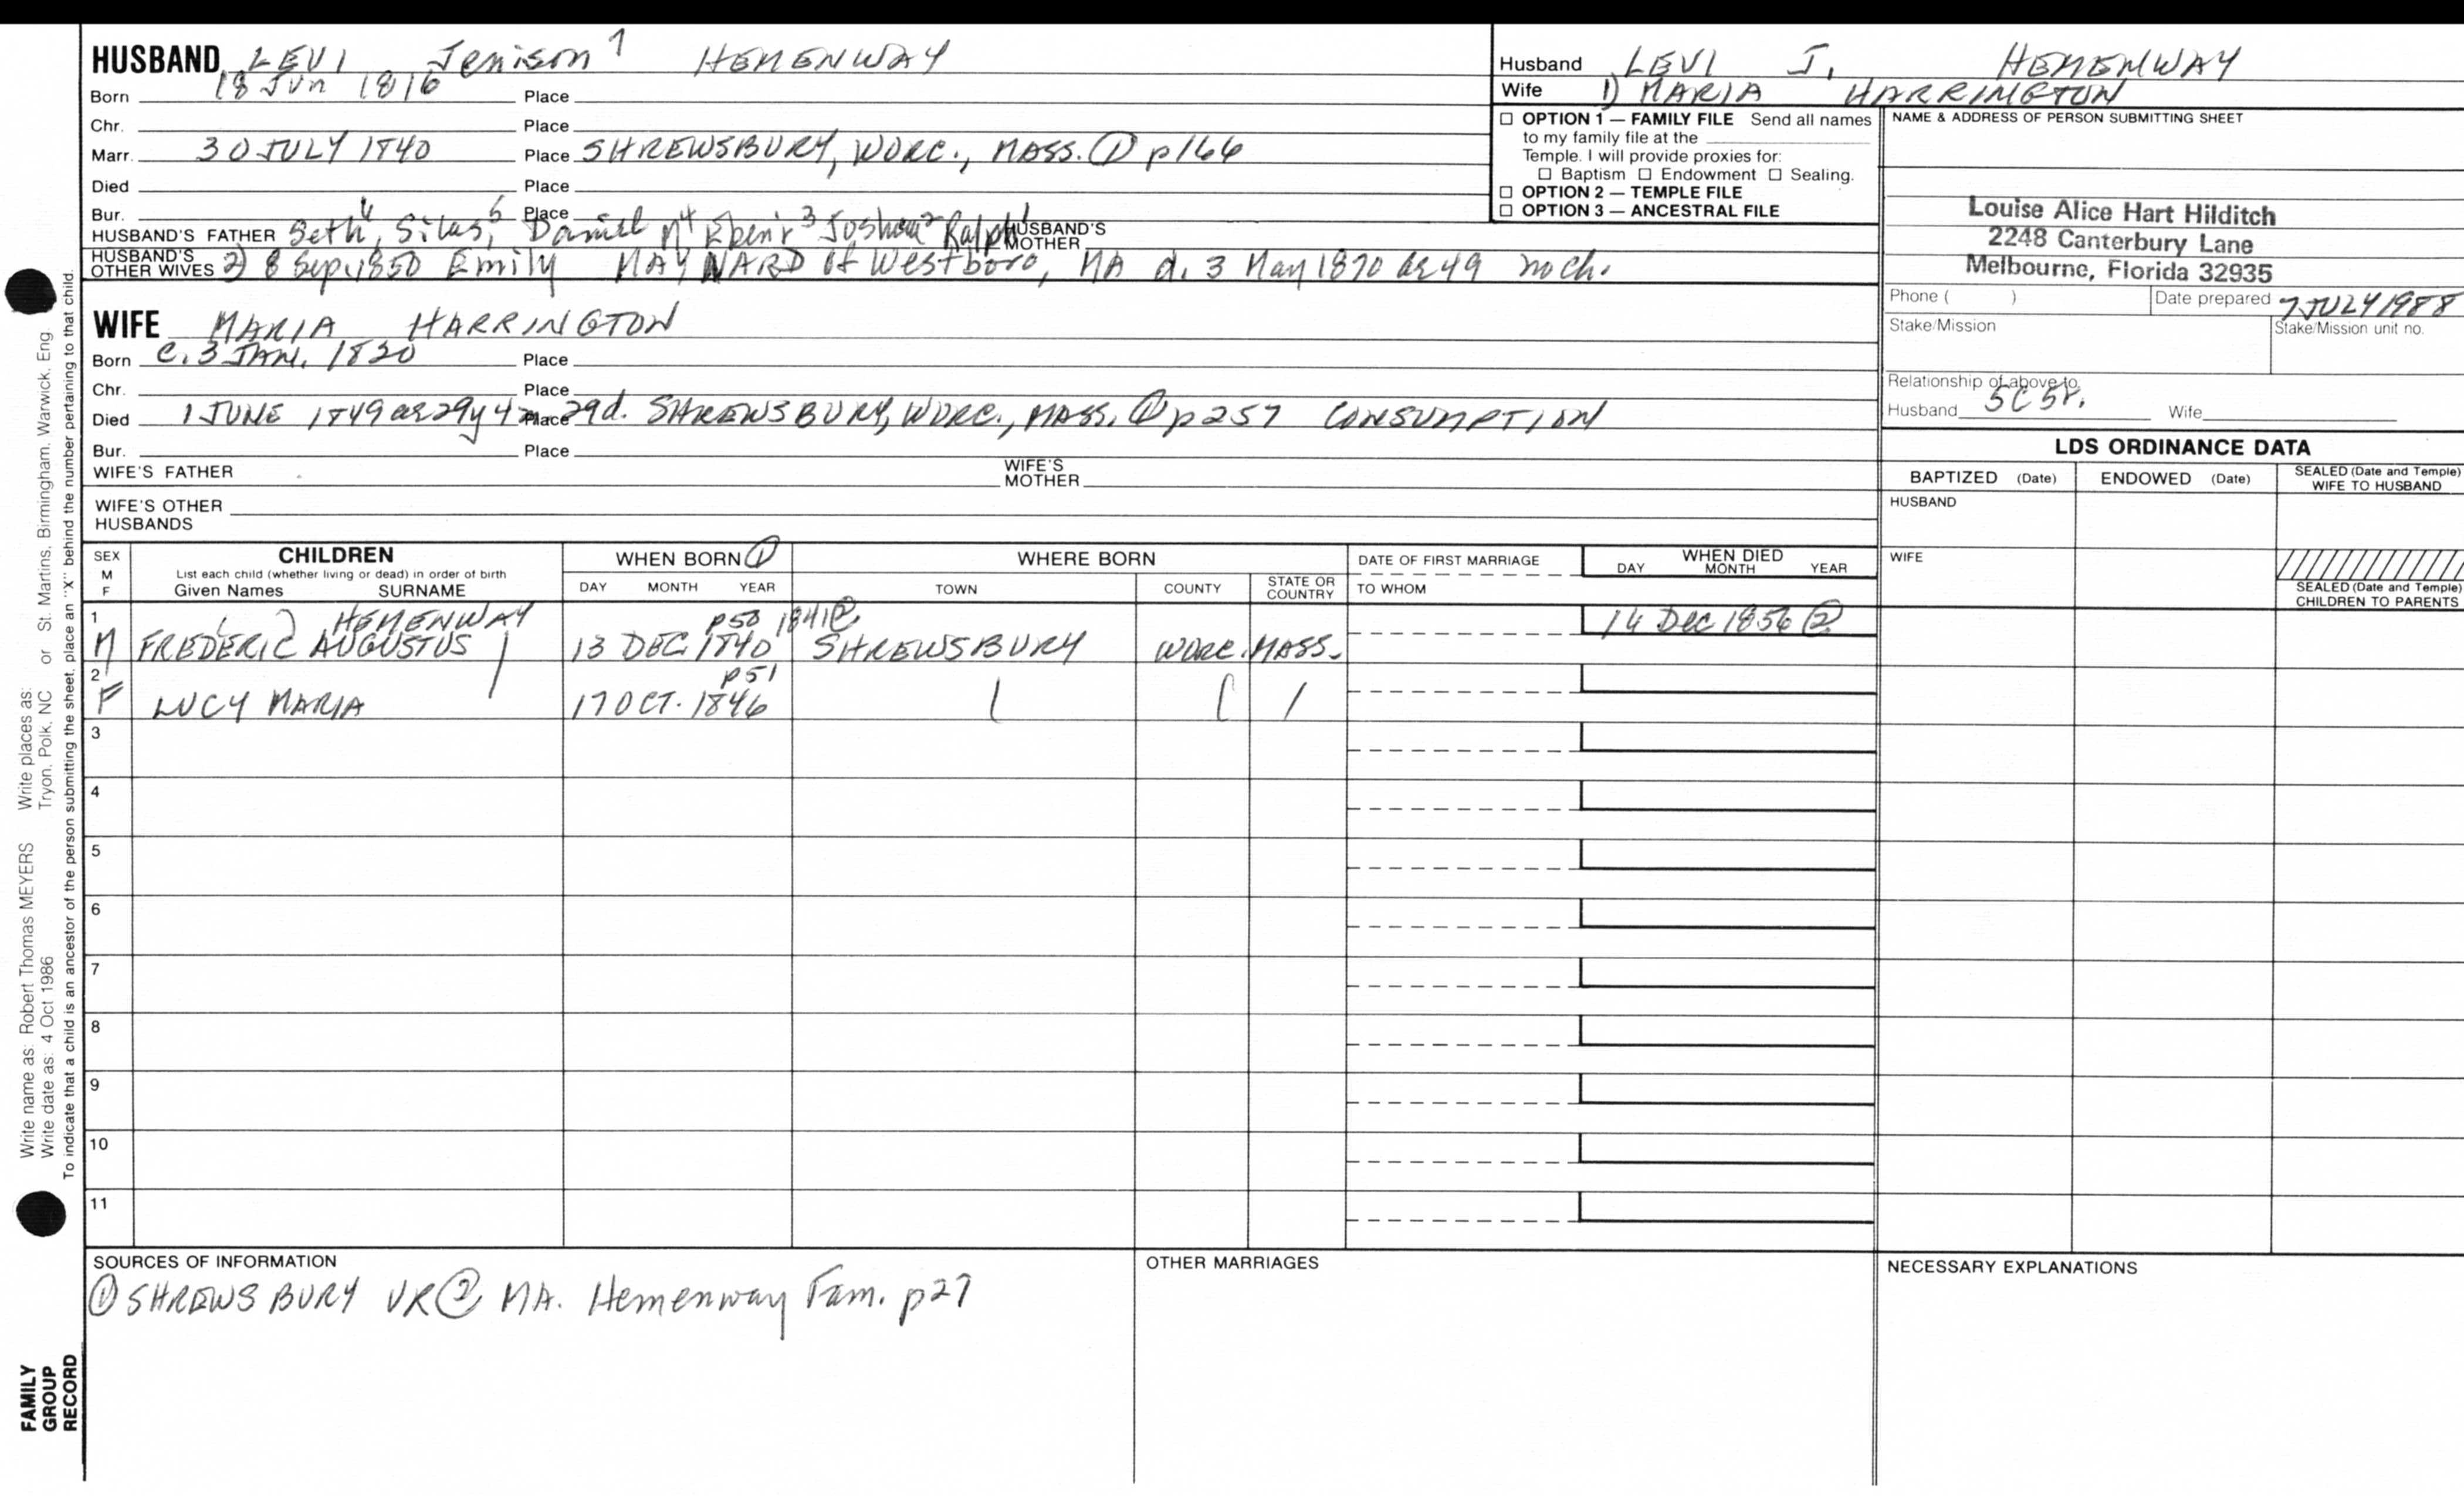 HUSBAND LEVI Jenison 7 HEMENWAY
Born 18 Jun 1816 Place
Chr. Place
Marr. 30 JULY 1840 Place SHREWSBURY, WORC., MASS. ① p166
Died Place
Bur. Place
HUSBAND'S FATHER Seth 6, Silas 5, Daniel 4 Ebenr 3 Joshua 2 Ralph 1 HUSBAND'S MOTHER
HUSBAND'S OTHER WIVES 2) 8 Sep. 1850 Emily MAYNARD of Westboro, MA d. 3 May 1870 ae 49 no ch.
WIFE MARIA HARRINGTON
Born c. 3 JAN. 1820 Place
Chr. Place
Died 1 JUNE 1849 ae 29y 4m Place 29d. SHREWSBURY, WORC., MASS. ① p257 CONSUMPTION
Bur. Place
WIFE'S FATHER WIFE'S MOTHER
WIFE'S OTHER HUSBANDS
Husband LEVI J. HEMENWAY
Wife 1) MARIA HARRINGTON
☐ OPTION 1 — FAMILY FILE Send all names
to my family file at the
Temple. I will provide proxies for:
☐ Baptism ☐ Endowment ☐ Sealing.
☐ OPTION 2 — TEMPLE FILE
☐ OPTION 3 — ANCESTRAL FILE
NAME & ADDRESS OF PERSON SUBMITTING SHEET
Louise Alice Hart Hilditch
2248 Canterbury Lane
Melbourne, Florida 32935
Phone ( ) Date prepared 7 JULY 1988
Stake/Mission Stake/Mission unit no.
Relationship of above to
Husband 5C5r. Wife
LDS ORDINANCE DATA
BAPTIZED (Date) ENDOWED (Date) SEALED (Date and Temple) WIFE TO HUSBAND
HUSBAND
WIFE
SEALED (Date and Temple)
CHILDREN TO PARENTS
SEX M F CHILDREN WHEN BORN ① WHERE BORN DATE OF FIRST MARRIAGE WHEN DIED
List each child (whether living or dead) in order of birth DAY MONTH YEAR
Given Names SURNAME DAY MONTH YEAR TOWN COUNTY STATE OR COUNTRY TO WHOM
1 HEMENWAY p50 1841② 14 Dec 1856 ②
M FREDERIC AUGUSTUS 13 DEC. 1840 SHREWSBURY WORC. MASS.
2 p51
F LUCY MARIA 17 OCT. 1846
3
4
5
6
7
8
9
10
11
SOURCES OF INFORMATION
① SHREWSBURY VR ② MA. Hemenway Fam. p27
OTHER MARRIAGES
NECESSARY EXPLANATIONS
Write name as: Robert Thomas MEYERS Write places as: 
Write date as: 4 Oct 1986 Tryon, Polk, NC or St. Martins, Birmingham, Warwick, Eng
To indicate that a child is an ancestor of the person submitting the sheet, place an "X" behind the number pertaining to that child.
FAMILY
GROUP
RECORD